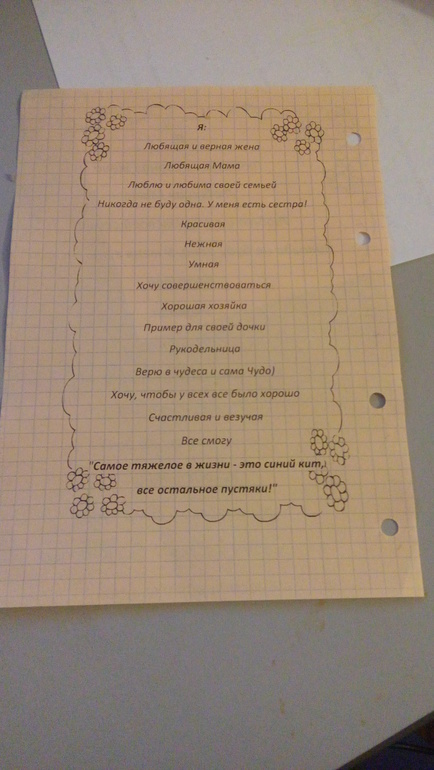 Я:
Любящая и верная жена
Любящая Мама
Люблю и любима своей семьей
Никогда не буду одна. У меня есть сестра!
Красивая
Нежная
Умная
Хочу совершенствоваться
Хорошая хозяйка
Пример для своей дочки
Рукодельница
Верю в чудеса и сама Чудо)
Хочу, чтобы у всех все было хорошо
Счастливая и везучая
Все смогу
"Самое тяжелое в жизни - это синий кит,
все остальное пустяки!"